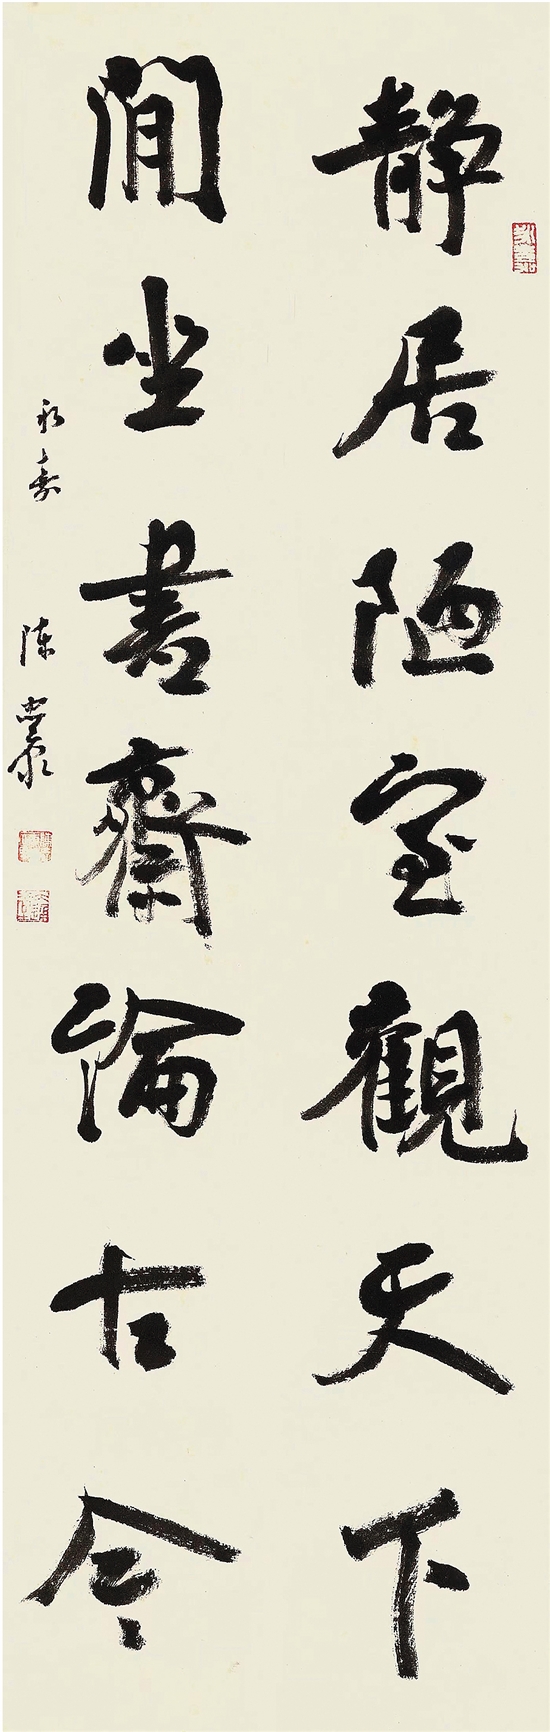 靜居陋室觀天下
閒坐書齋論古今
永嘉 陳忠康